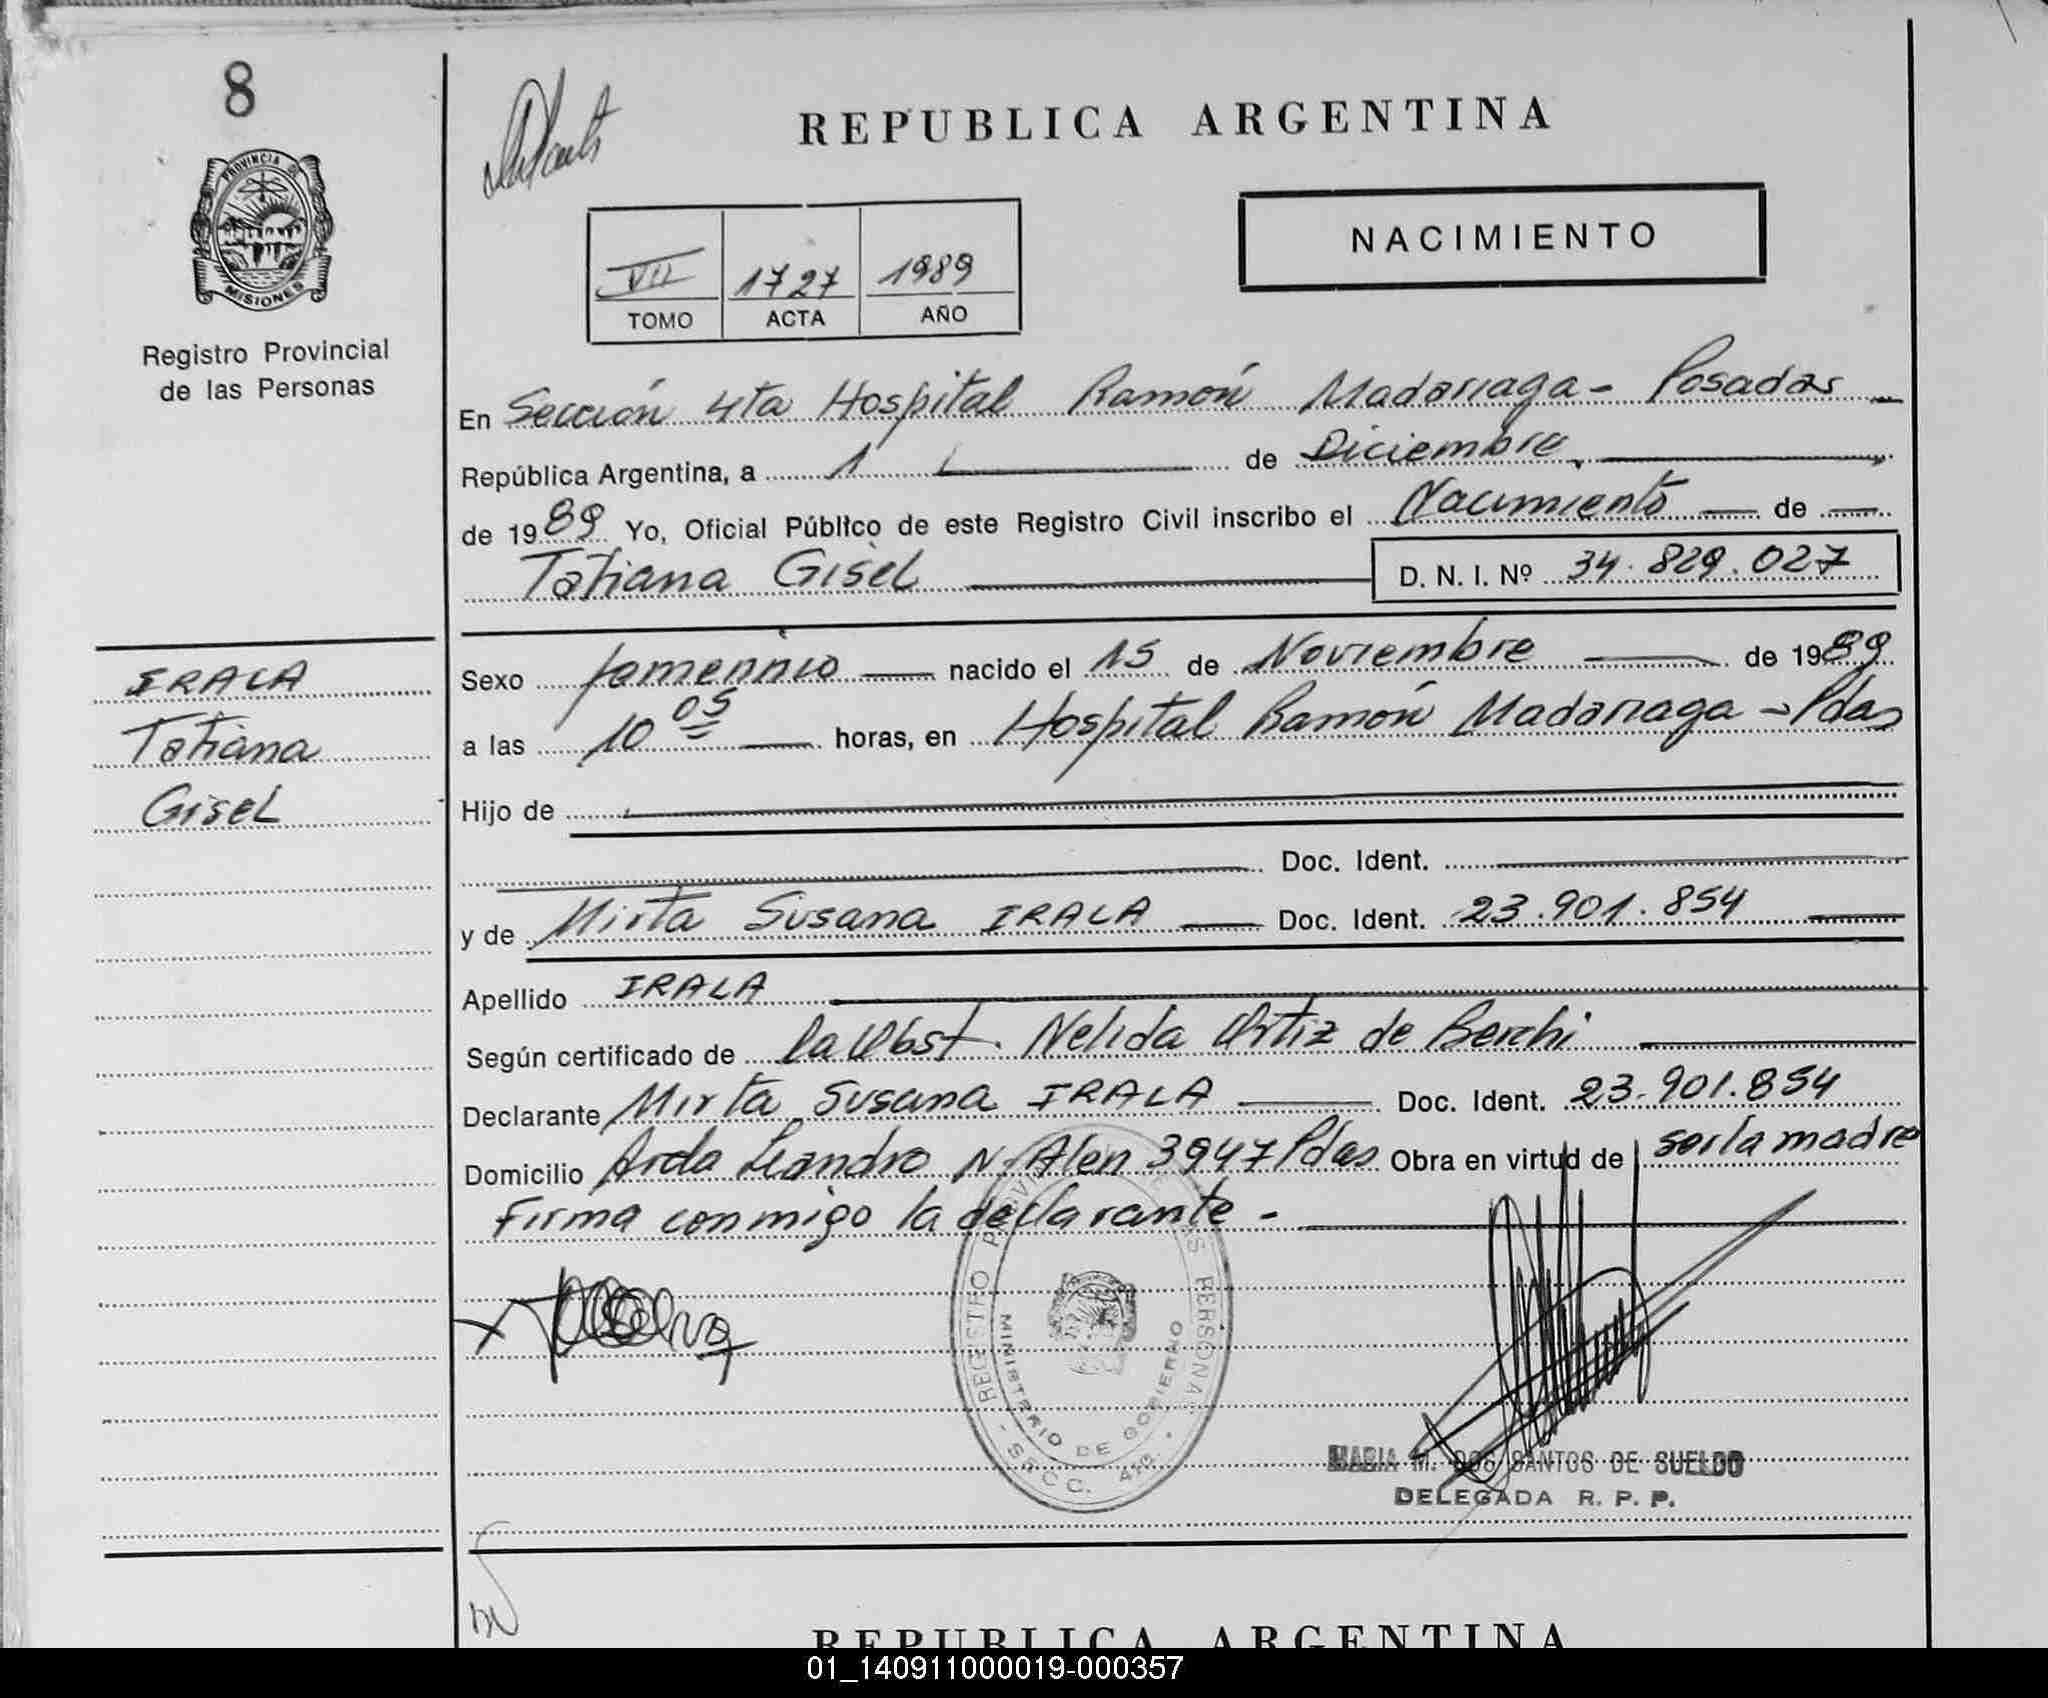 8
REPUBLICA ARGENTINA
PROVINCIA DE
MISIONES
NACIMIENTO
VII 1727 1989
TOMO ACTA AÑO
Registro Provincial
de las Personas
En Sección 4ta Hospital Ramón Madariaga - Posadas
República Argentina, a 1 de Diciembre
de 1989 Yo, Oficial Público de este Registro Civil inscribo el Nacimiento de
Tatiana Gisel D. N. I. Nº 34.829.027
IRALA
Tatiana
Gisel
Sexo femenino nacido el 15 de Noviembre de 1989
a las 10 05 horas, en Hospital Ramón Madariaga - Pdas
Hijo de
Doc. Ident.
y de Mirta Susana IRALA Doc. Ident. 23.901.854
Apellido IRALA
Según certificado de la Obst. Nelida Ortiz de Berchi
Declarante Mirta Susana IRALA Doc. Ident. 23.901.854
Domicilio Avda Leandro N. Alen 3947 Pdas Obra en virtud de ser la madre
Firma conmigo la declarante -
REGISTRO PROVINCIAL DE LAS PERSONAS
MINISTERIO DE GOBIERNO
SECC. 4ta.
MARIA M. DOS SANTOS DE SUELDO
DELEGADA R. P. P.
REPUBLICA ARGENTINA
01_140911000019-000357